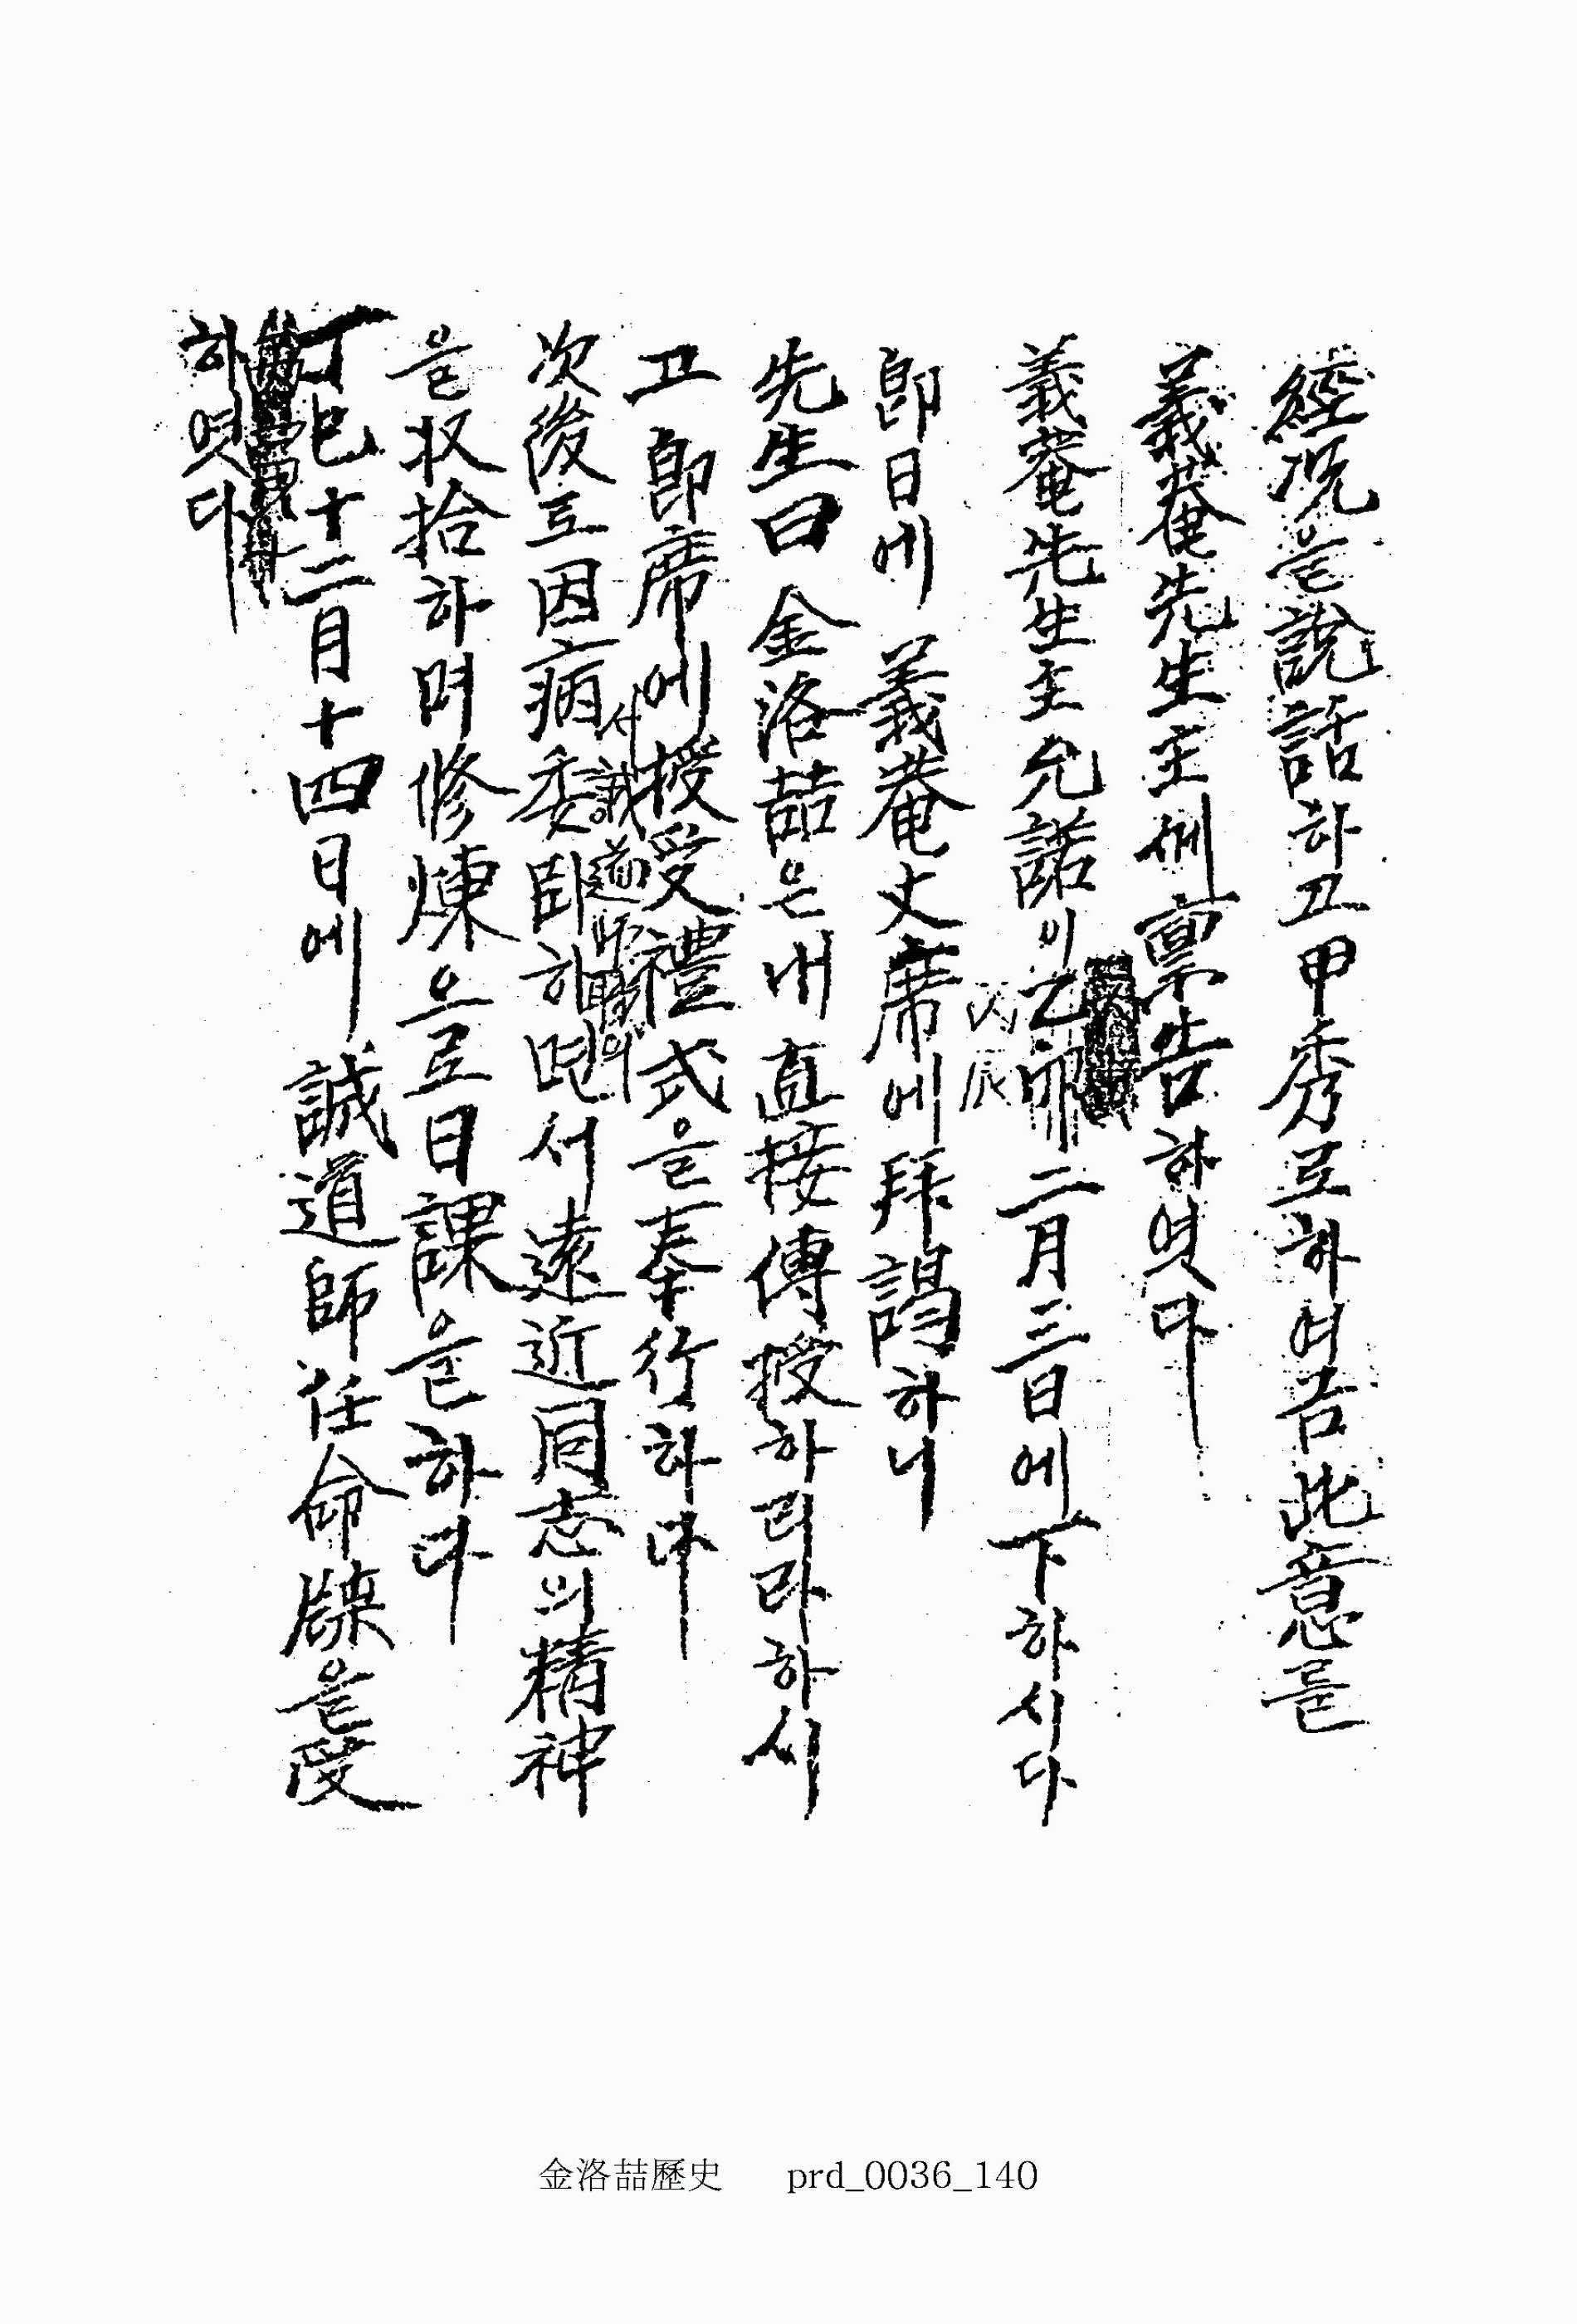 經况을說話하고甲秀로하여금此意를
義菴先生主側稟告하엿다
義菴先生主允諾이乙卯二月三日에下하시다
丙辰
卽日에 義菴丈席에拜謁하니
先生曰 金洛喆은내直接傳授하리라하시
고 卽席에授受禮式을奉行하다
誠道師職의
次後로因病委臥하면서遠近同志의精神
을收拾하며修煉으로日課을하다
丁巳十二月十四日에 誠道師任命牒을受
하엿다
金洛喆歷史 prd_0036_140